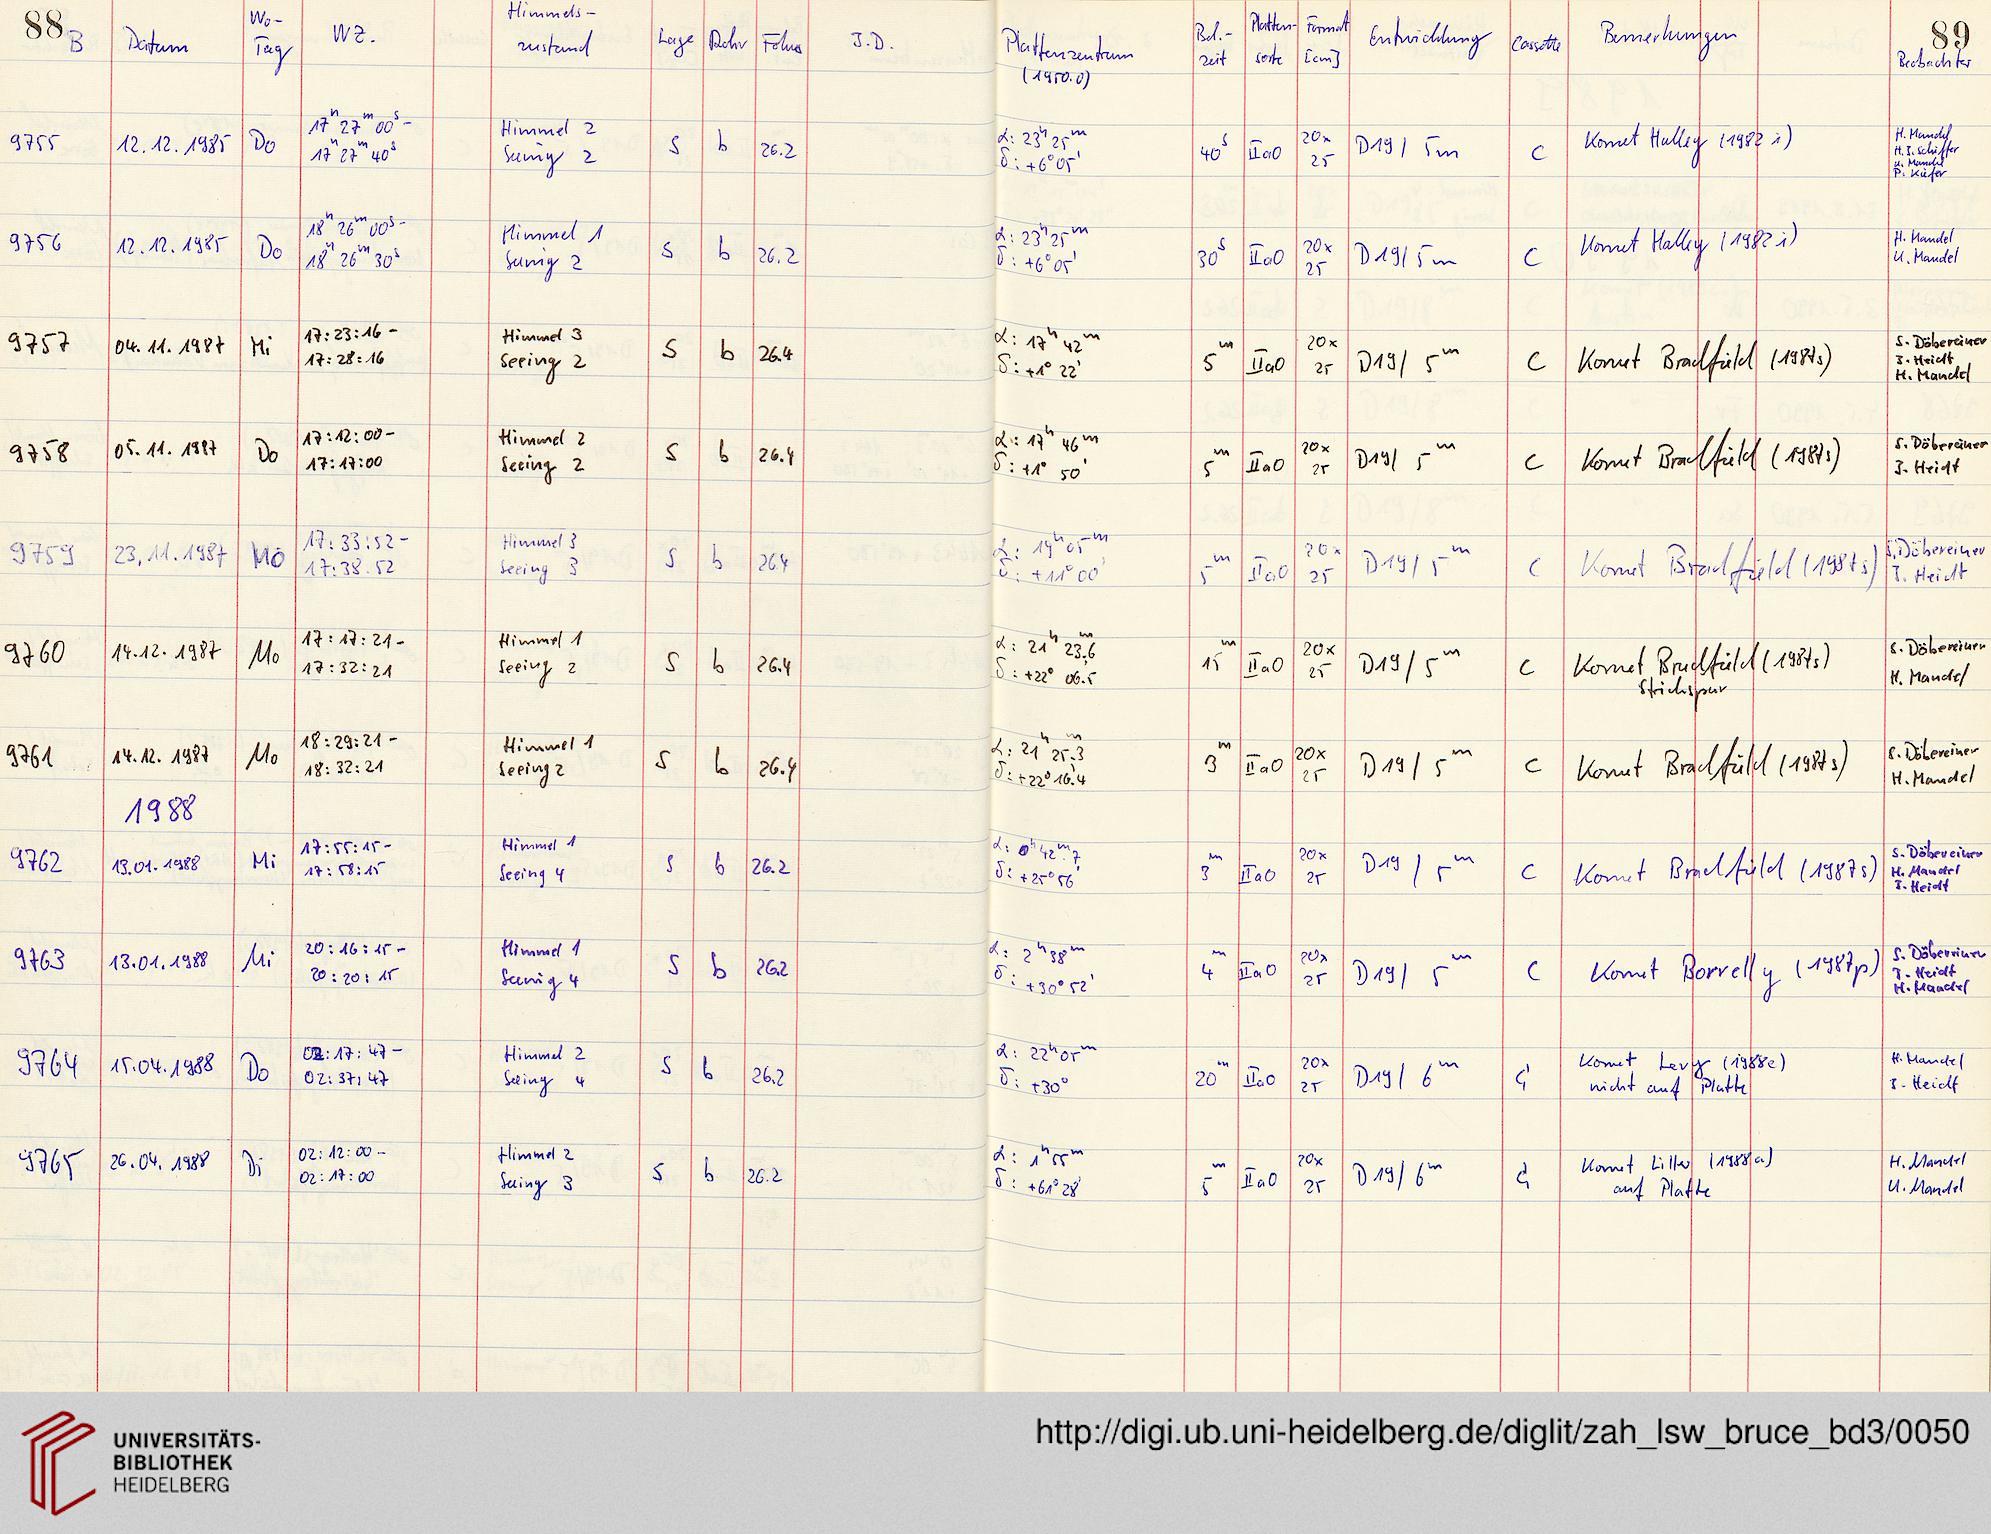 88
89
B Datum Wo-Tag WZ. Himmels-zustand Lage Rohr Fokus J.D. Plattenzentrum (1950.0) Bel.-zeit Platten-sorte Format [cm] Entwicklung Cassette Bemerkungen Beobachter
9755 12.12.1985 Do 17h27m00s- Himmel 2 S b 26.2 α: 23h25m 40s IIaO 20x25 D19/ 5m C Komet Halley (1982 i) H. Mandel
17h27m40s Seeing 2 δ: +6°05' H.J. Schäffer
U. Mandel
P. Kiefer
9756 12.12.1985 Do 18h26m00s- Himmel 1 S b 26.2 α: 23h25m 30s IIaO 20x25 D19/5m C Komet Halley (1982 i) H. Mandel
18h26m30s Seeing 2 δ: +6°05' U. Mandel
9757 04.11.1987 Mi 17:23:16- Himmel 3 S b 26.4 α: 17h 42m 5m IIaO 20x25 D19/ 5m C Komet Bradfield (1987s) S. Döbereiner
17:28:16 Seeing 2 δ: +1° 22' J. Heidt
H. Mandel
9758 05.11.1987 Do 17:12:00- Himmel 2 S b 26.4 α: 17h 46m 5m IIaO 20x25 D19/ 5m C Komet Bradfield (1987s) S. Döbereiner
17:17:00 Seeing 2 δ: +1° 50' J. Heidt
9759 23.11.1987 Mo 17:33:52- Himmel 3 S b 26.4 α: 19h05m 5m IIaO 20x25 D19/ 5m C Komet Bradfield (1987s) S. Döbereiner
17:38.52 Seeing 3 δ: +11°00' J. Heidt
9760 14.12.1987 Mo 17:17:21- Himmel 1 S b 26.4 α: 21h 23m,6 15m IIaO 20x25 D19/ 5m C Komet Bradfield (1987s) S. Döbereiner
17:32:21 Seeing 2 δ: +22° 06.5 Strichspur H. Mandel
9761 14.12.1987 Mo 18:29:21- Himmel 1 S b 26.4 α: 21h 25m.3 3m IIaO 20x25 D19/ 5m C Komet Bradfield (1987s) S. Döbereiner
18:32:21 Seeing 2 δ: +22°16'.4 H. Mandel
1988
9762 13.01.1988 Mi 17:55:15- Himmel 1 S b 26.2 α: 0h42m.7 3m IIaO 20x25 D19/ 5m C Komet Bradfield (1987s) S. Döbereiner
17:58:15 Seeing 4 δ: +25°56' H. Mandel
J. Heidt
9763 13.01.1988 Mi 20:16:15- Himmel 1 S b 26.2 α: 2h38m 4m IIaO 20x25 D19/ 5m C Komet Borrelly (1987p) S. Döbereiner
20:20:15 Seeing 4 δ: +30°52' J. Heidt
H. Mandel
9764 15.04.1988 Do 02:17:47- Himmel 2 S b 26.2 α: 22h05m 20m IIaO 20x25 D19/ 6m Komet Levy (1988e) H. Mandel
02:37:47 Seeing 4 δ: +30° nicht auf Platte J. Heidt
9765 26.04.1988 Di 02:12:00- Himmel 2 S b 26.2 α: 1h55m 5m IIaO 20x25 D19/ 6m Komet Liller (1988a) H. Mandel
02:17:00 Seeing 3 δ: +61°28' auf Platte U. Mandel
UNIVERSITÄTS-
BIBLIOTHEK
HEIDELBERG
http://digi.ub.uni-heidelberg.de/diglit/zah_lsw_bruce_bd3/0050